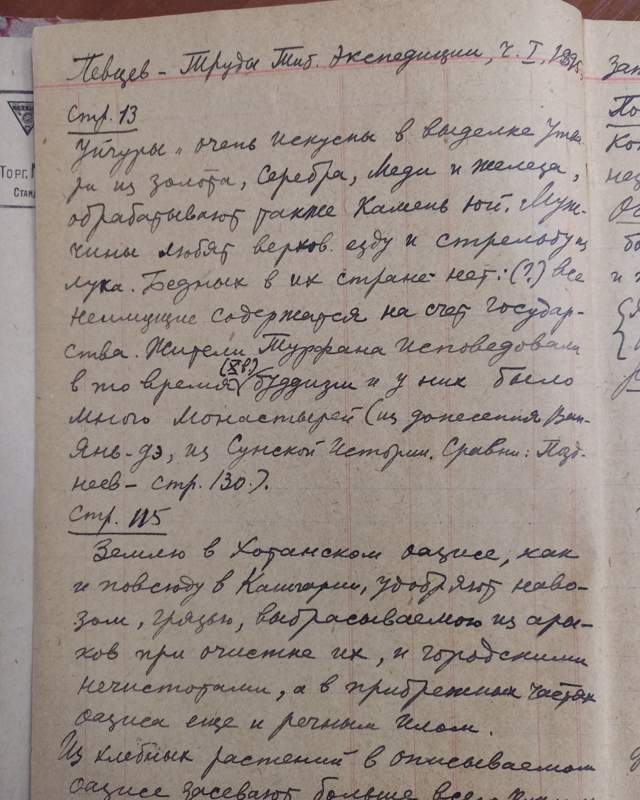 Певцев – Труды Тиб. экспедиции, ч. I, 1895.
Стр. 13
Уйгуры „очень искусны в выделке утва-
ри из золота, серебра, меди и железа,
обрабатывают также камень юй. Муж-
чины любят верхов. езду и стрельбу из
лука. Бедных в их стране нет: (?) все
неимущие содержатся на счет государ-
ства. Жители Турфана исповедовали
в то время (X в.) буддизм и у них было
много монастырей (из донесения Ван-
Янь-дэ, из Сунской истории. Сравни: Позд-
неев – стр. 130.).
Стр. 115
Землю в Хотанском оазисе, как
и повсюду в Кашгарии, удобряют наво-
зом, грязью, выбрасываемою из ары-
ков при очистке их, и городскими
нечистотами, а в прибрежных частях
оазиса еще и речным илом.
Из хлебных растений в описываемом
оазисе засевают больше всего
Торг.
Стан
Зап
По
Ко
нед
бо
и